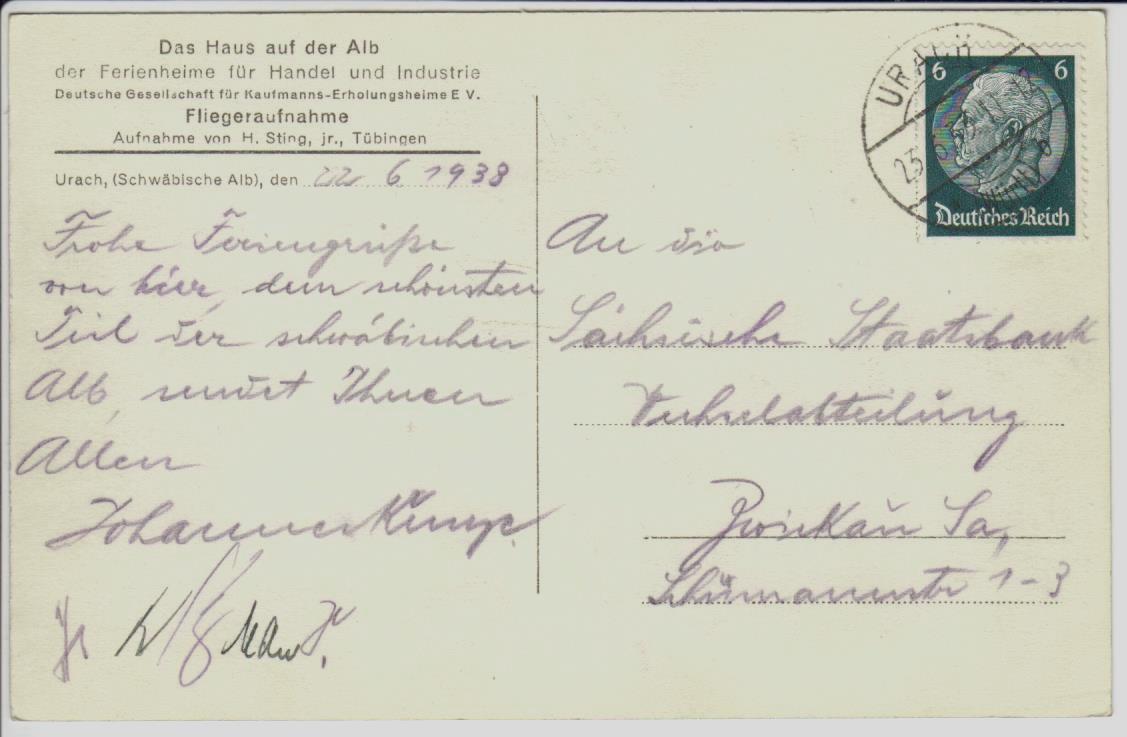 Das Haus auf der Alb
der Ferienheime für Handel und Industrie
Deutsche Gesellschaft für Kaufmanns-Erholungsheime E V.
Fliegeraufnahme
Aufnahme von H. Sting, jr., Tübingen
Urach, (Schwäbische Alb), den 22 6 1938
Frohe Feriengrüße
von hier, dem schönsten
Teil der schwäbischen
Alb, sendet Ihnen
Allen
Johannes
URACH
6 6
Deutsches Reich
An die
Sächsische Staatsbank
Wechselabteilung
Zwickau Sa,
Schumannstr 1-3